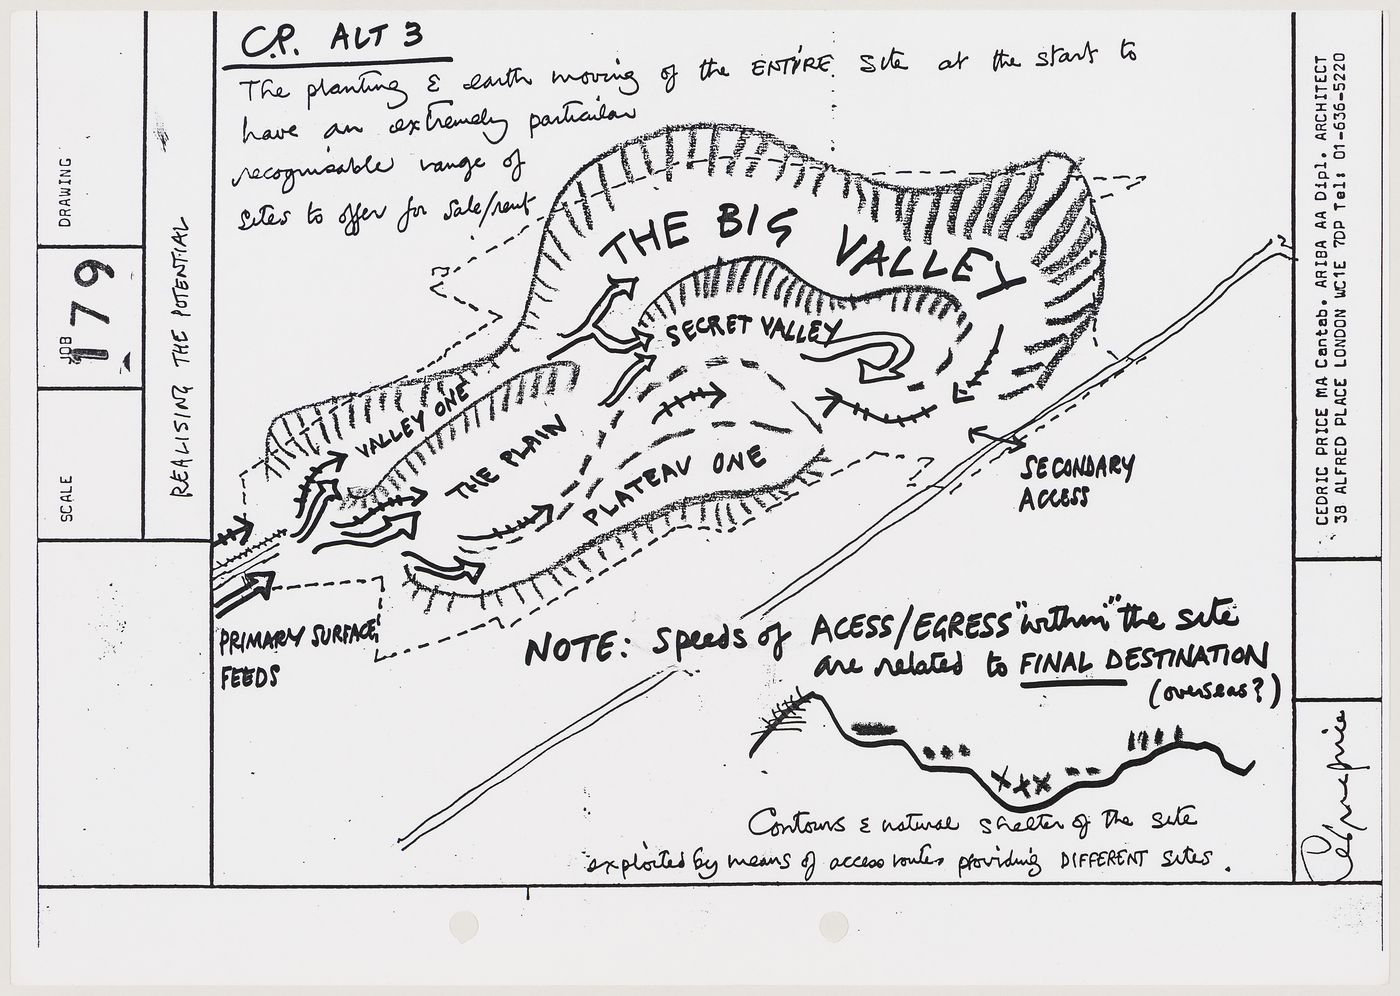 C.P. ALT 3
The planting & earth moving of the ENTIRE site at the start to
have an extremely particular
recognisable range of
sites to offer for sale/rent
DRAWING
JOB
179
SCALE
REALISING THE POTENTIAL
THE BIG VALLEY
SECRET VALLEY
VALLEY ONE
THE PLAIN
PLATEAU ONE
SECONDARY
ACCESS
PRIMARY SURFACE
FEEDS
NOTE: Speeds of ACESS/EGRESS "within" the site
are related to FINAL DESTINATION
(overseas?)
Contours & natural shelter of the site
exploited by means of access routes providing DIFFERENT sites.
CEDRIC PRICE MA Cantab. ARIBA AA Dipl. ARCHITECT
38 ALFRED PLACE LONDON WC1E 7DP Tel: 01-636-5220
Cedric Price